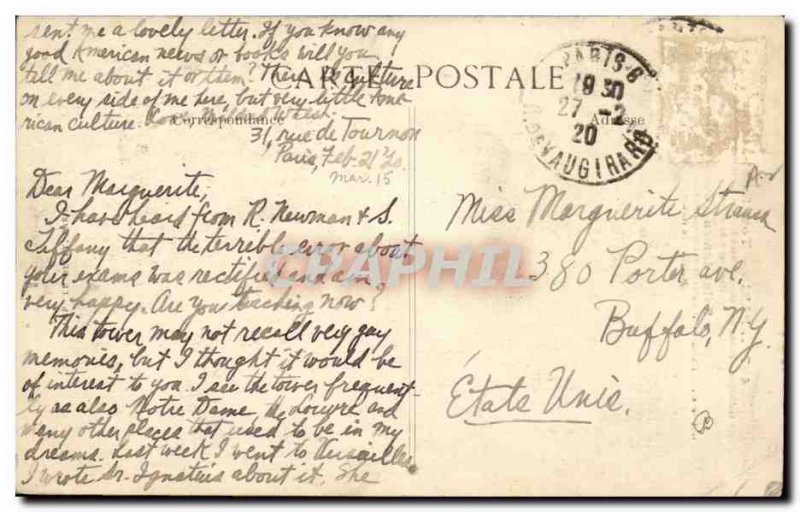 sent me a lovely letter. If you know any
good American news or books will you
tell me about it or them? There is culture
on every side of me here, but very little Ame-
rican culture.
CARTE POSTALE
Correspondance
Adresse
31, rue de Tournon
Paris, Feb. 21 '20
Mar. 15
PARIS-6
19 30
27 -2
20
R. DE VAUGIRARD
Dear Marguerite,
I have heard from R. Newman & S.
Tiffany that the terrible error about
your exams was rectified and am
very happy. Are you teaching now?
This tower may not recall very gay
memories, but I thought it would be
of interest to you. I see the tower frequent-
ly as also Notre Dame, the Louvre and
many other places that used to be in my
dreams. Last week I went to Versailles
I wrote Sr. Ignatius about it. She
Miss Marguerite
380 Porter ave.
Buffalo, N.Y.
États Unis.
CARPHIL